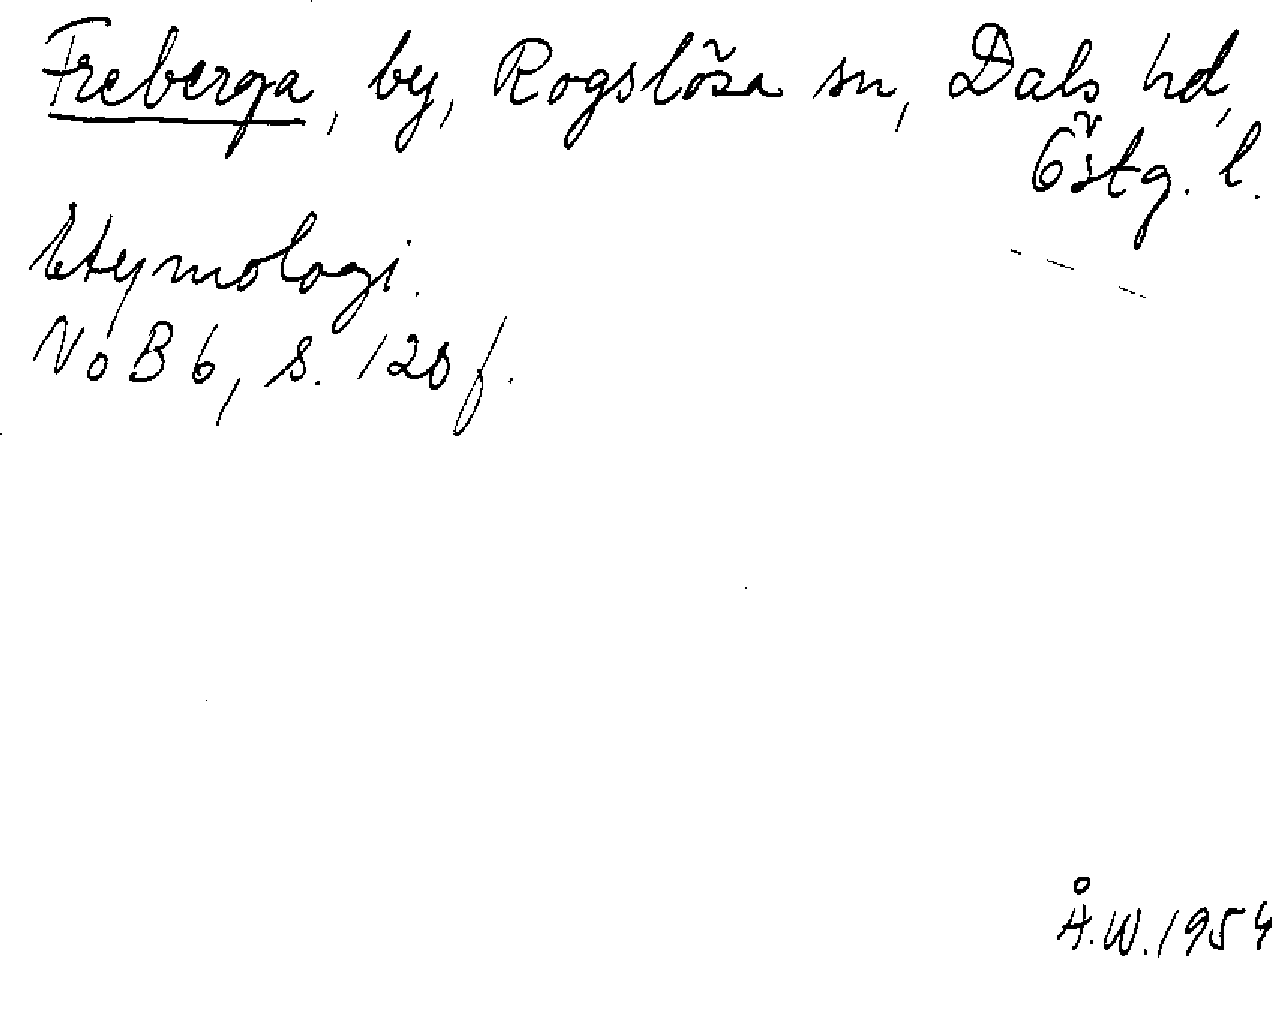 Freberga, by, Rogslösa sn, Dals hd,
Östg. l.
Etymologi.
NoB 6, s. 120 f.
Å.W. 1954